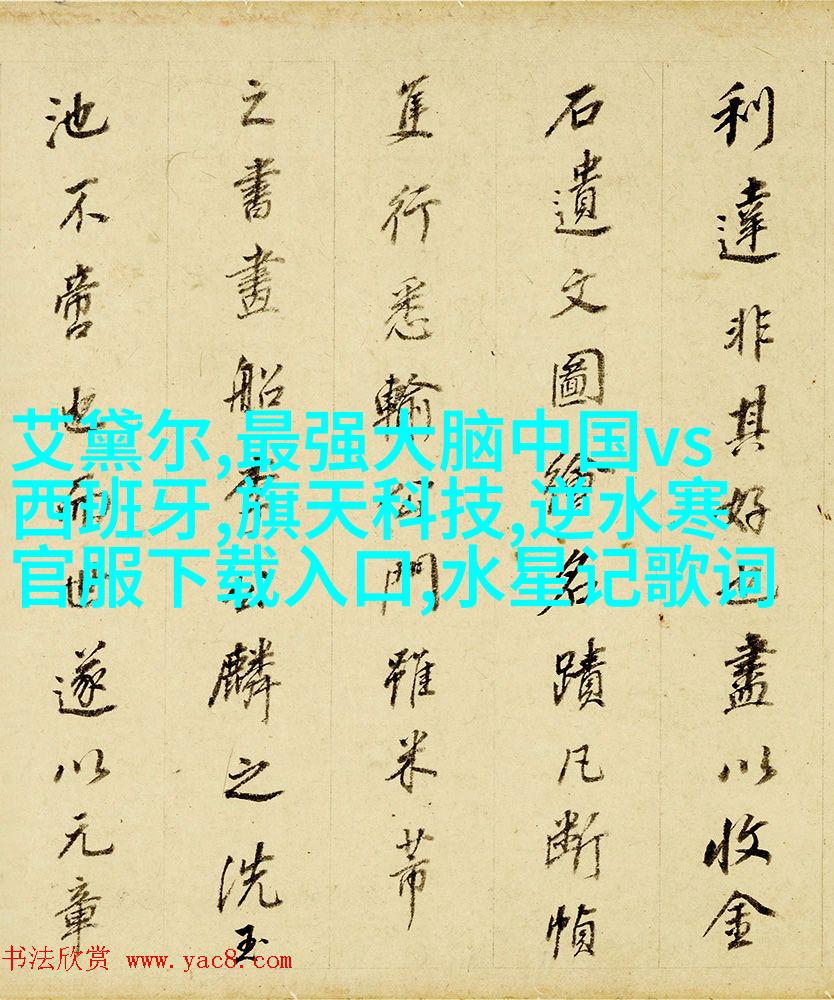 利達非其好也盡以收金
石遺文圖繪名蹟凡斷幀
隻行悉輸門雖米芾
之書畫船李公麟之洗玉
池不啻也而世遂以元章
艾黛尔,最强大脑中国vs
西班牙,旗天科技,逆水寒
官服下载入口,水星记歌词
书法欣赏 www.yac8.com